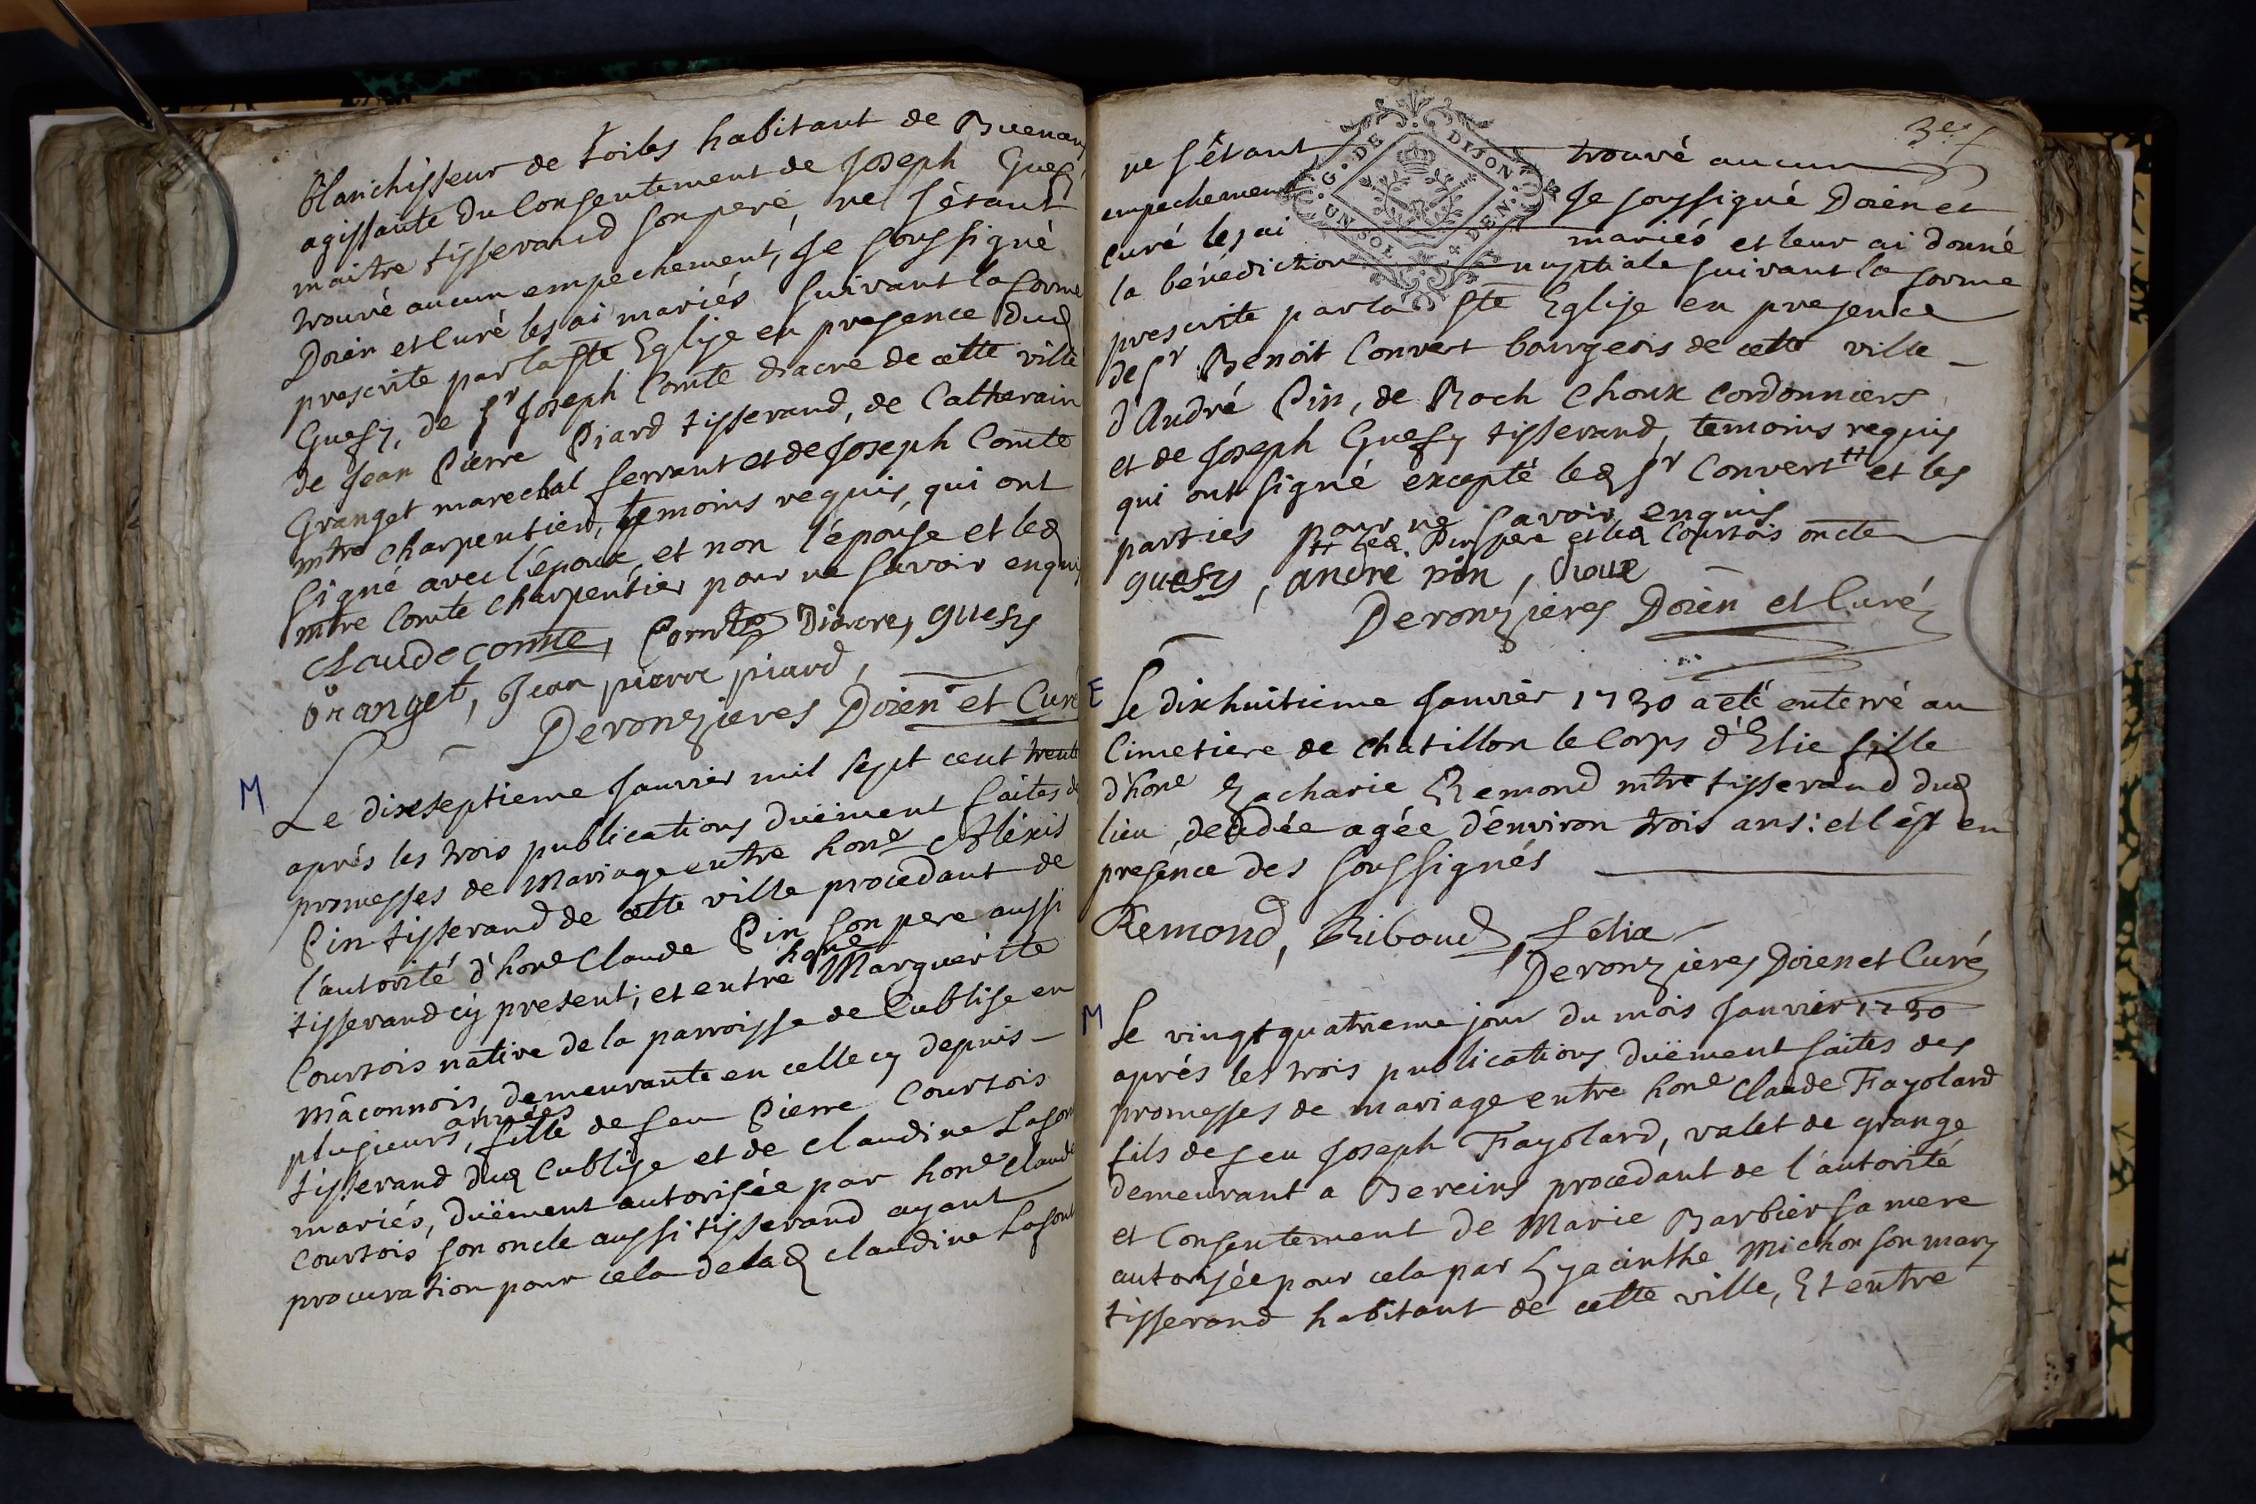 blanchisseur de toiles habitant de Buenans
agissante du Consentement de Joseph Guesy
maitre tisserand son pere, ne s'étant
trouvé aucun empechement, Je soussigné
Doien et Curé les ai mariés suivant la forme
prescrite par la Ste Eglise en presence dud
Guesy, de Sr Joseph Comte diacre de cette ville
de Jean Pierre Piard tisserand, de Catherain
Granget marechal ferrant et de Joseph Comte
mtre Charpentier, temoins requis, qui ont
signé avec l'époux et non l'épouse et led
mtre Comte Charpentier pour ne savoir enquis
claude comte, Comte Diacre, guesy
Granget, Jean pierre piard,
Deronzieres Doien et Curé
M
Le dixseptieme Janvier mil sept cent trente
aprés les trois publications duëment faites des
promesses de Mariage entre hone Aléxis
Pin tisserand de cette ville procédant de
l'autorité d'hone Claude Pin son pere aussi
tisserand cy present; et entre hone Marguerite
Courtois native de la parroisse de Cublise en
Mâconnois, demeurante en celle cy depuis
plusieurs années, fille de feu Pierre Courtois
tisserand dud Cublise et de Claudine Lafont
mariés, duëment autorisée par hone Claude
Courtois son oncle aussi tisserand ayant
procuration pour cela de lad Claudine Lafont
3e
G. DE DIJON
UN SOL 4 DEN.
ne s'étant trouvé aucun
empechement Je soussigné Doien et
Curé les ai mariés et leur ai donné
la bénédiction nuptiale suivant la forme
prescrite par la Ste Eglise en presence
de Sr Benoit Convert bourgeois de cette ville
d'André Pin, de Roch Choux Cordonniers
et de Joseph Guesy tisserand, temoins requis
qui ont signé excepté led Sr Convert ++ et les
parties pour ne savoir enquis
++ led. Pin pere et led Courtois oncle
guesy, andré pin, Choux
Deronzieres Doien et Curé
E
Le dixhuitieme Janvier 1730 a eté enterré au
Cimetiere de Chatillon le Corps d'Elie fille
d'hone Zacharie Remond mtre tisserand dud
lieu decedée agée d'environ trois ans: et l'est en
presence des soussignés
Remond, Riboud, Félix
Deronzieres Doien et Curé
M
Le vingtquatrieme jour du mois Janvier 1730
aprés les trois publications duëment faites des
promesses de mariage entre hone Claude Fayolard
fils de feu Joseph Fayolard, valet de grange
demeurant a Bereins procedant de l'autorité
et Consentement de Marie Barbier sa mere
autorisée pour cela par Hyacinthe Michon son mary
tisserand habitant de cette ville, Et entre